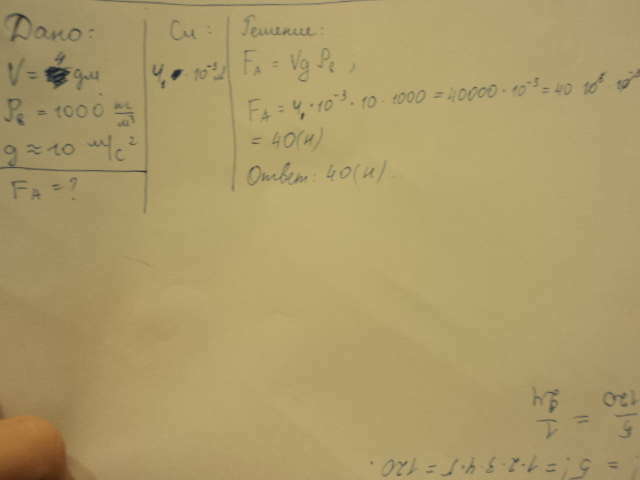 Дано:
V = 4 дм
ρв = 1000 кг/м³
g ≈ 10 м/с²
F_A = ?
Си:
4 · 10⁻³
Решение:
F_A = Vg ρв,
F_A = 4 · 10⁻³ · 10 · 1000 = 40000 · 10⁻³ = 40 · 10³ · 10⁻³
= 40 (н)
Ответ: 40 (н).
= 5! = 1·2·3·4·5 = 120.
5/120 = 1/24